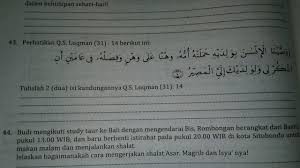 dalam kehidupan sehari-hari!
43. Perhatikan Q.S. Luqman (31) : 14 berikut ini:
وَوَصَّيْنَا الْإِنْسٰنَ بِوٰلِدَيْهِ حَمَلَتْهُ أُمُّهُ وَهْنًا عَلٰى وَهْنٍ وَفِصٰلُهُ فِى عَامَيْنِ أَنِ
اشْكُرْ لِى وَلِوٰلِدَيْكَ إِلَىَّ الْمَصِيْرُ
Tulislah 2 (dua) isi kandungannya Q.S. Luqman (31) : 14
44. Budi mengikuti study taur ke Bali dengan mengendarai Bis, Rombongan berangkat dari
pukul 13.00 WIB, dan baru berhenti istirahat pada pukul 20.00 WIB di kota Situbondo
makan malam dan menjalankan shalat.
Jelaskan bagaimanakah cara mengerjakan shalat Asar, Magrib dan Isya' nya!